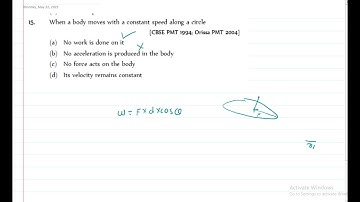 15. When a body moves with a constant speed along a circle
[CBSE PMT 1994; Orissa PMT 2004]
(a) No work is done on it
(b) No acceleration is produced in the body
(c) No force acts on the body
(d) Its velocity remains constant
W = F x d x cos θ
Activate Windows
Go to Settings to activate Windows